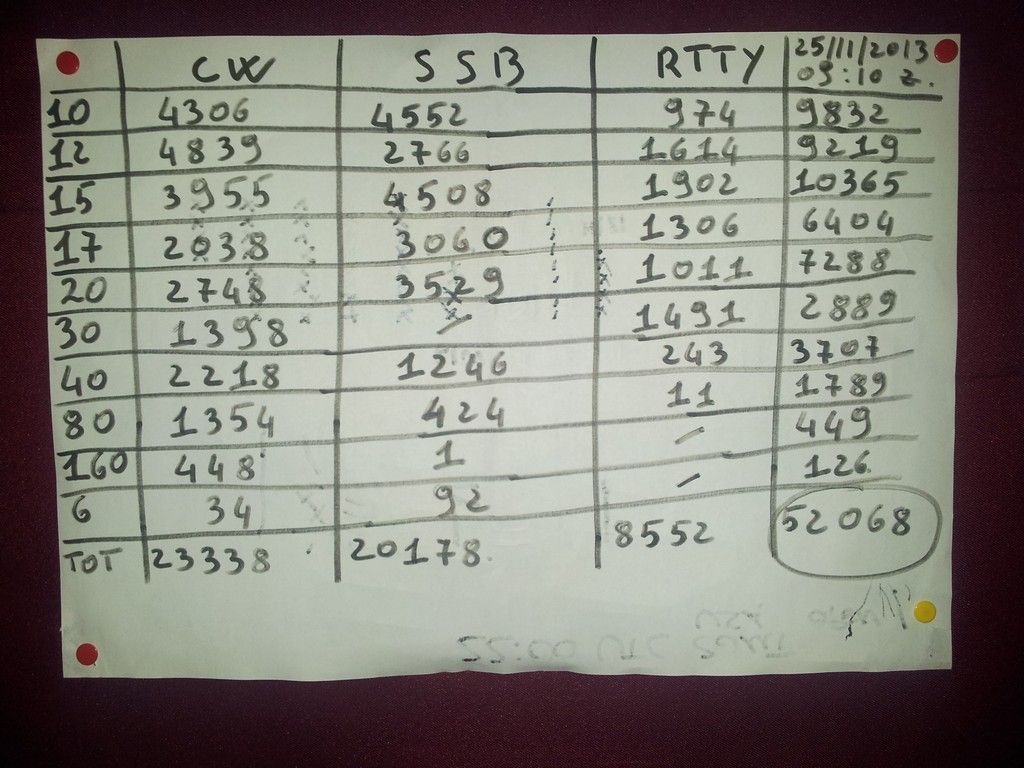 CW SSB RTTY 25/11/2013
09:10 z.
10 4306 4552 974 9832
12 4839 2766 1614 9219
15 3955 4508 1902 10365
17 2038 3060 1306 6404
20 2748 3529 1011 7288
30 1398 / 1491 2889
40 2218 1246 243 3707
80 1354 424 11 1789
160 448 1 / 449
6 34 92 / 126
TOT 23338 20178 8552 52068